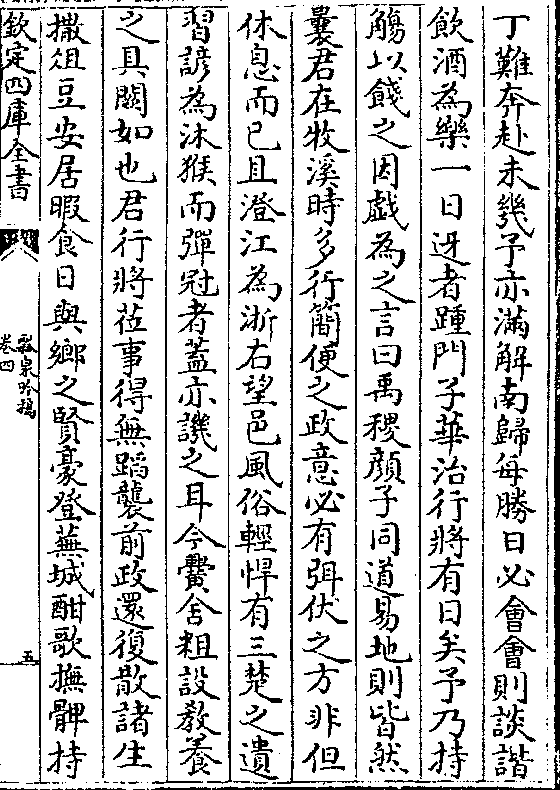 丁難奔赴未幾予亦滿解南歸每勝日必會會則談諧
飲酒為樂一日迓者踵門子華治行將有日矣予乃持
觴以餞之因戲為之言曰禹稷顔子同道易地則皆然
曩君在牧溪時多行簡便之政意必有弭伏之方非但
休息而已且澄江為浙右望邑風俗輕悍有三楚之遺
習諺為沐猴而彈冠者蓋亦譏之耳今黌舍粗設教養
之具闕如也君行將莅事得無蹈襲前政還復散諸生
撤俎豆安居暇食日與鄉之賢豪登蕪城酣歌撫髀持
欽定四庫全書
瓢泉吟稿
卷四
五